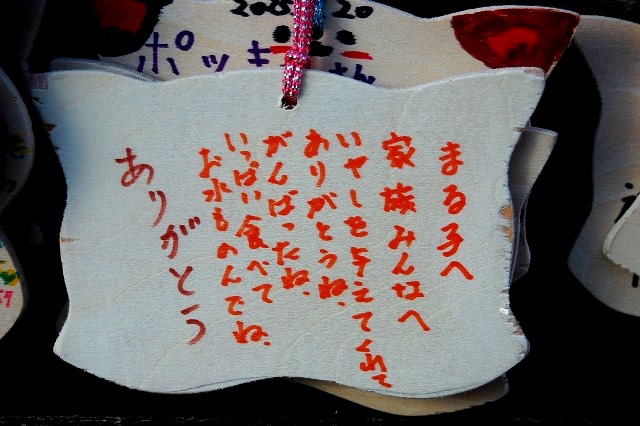 まる子へ
家族みんなへ
いやしを与えてくれて
ありがとうね、
がんばったね、
いっぱい食べて
お水ものんでね、
ありがとう
ポッキ
さん